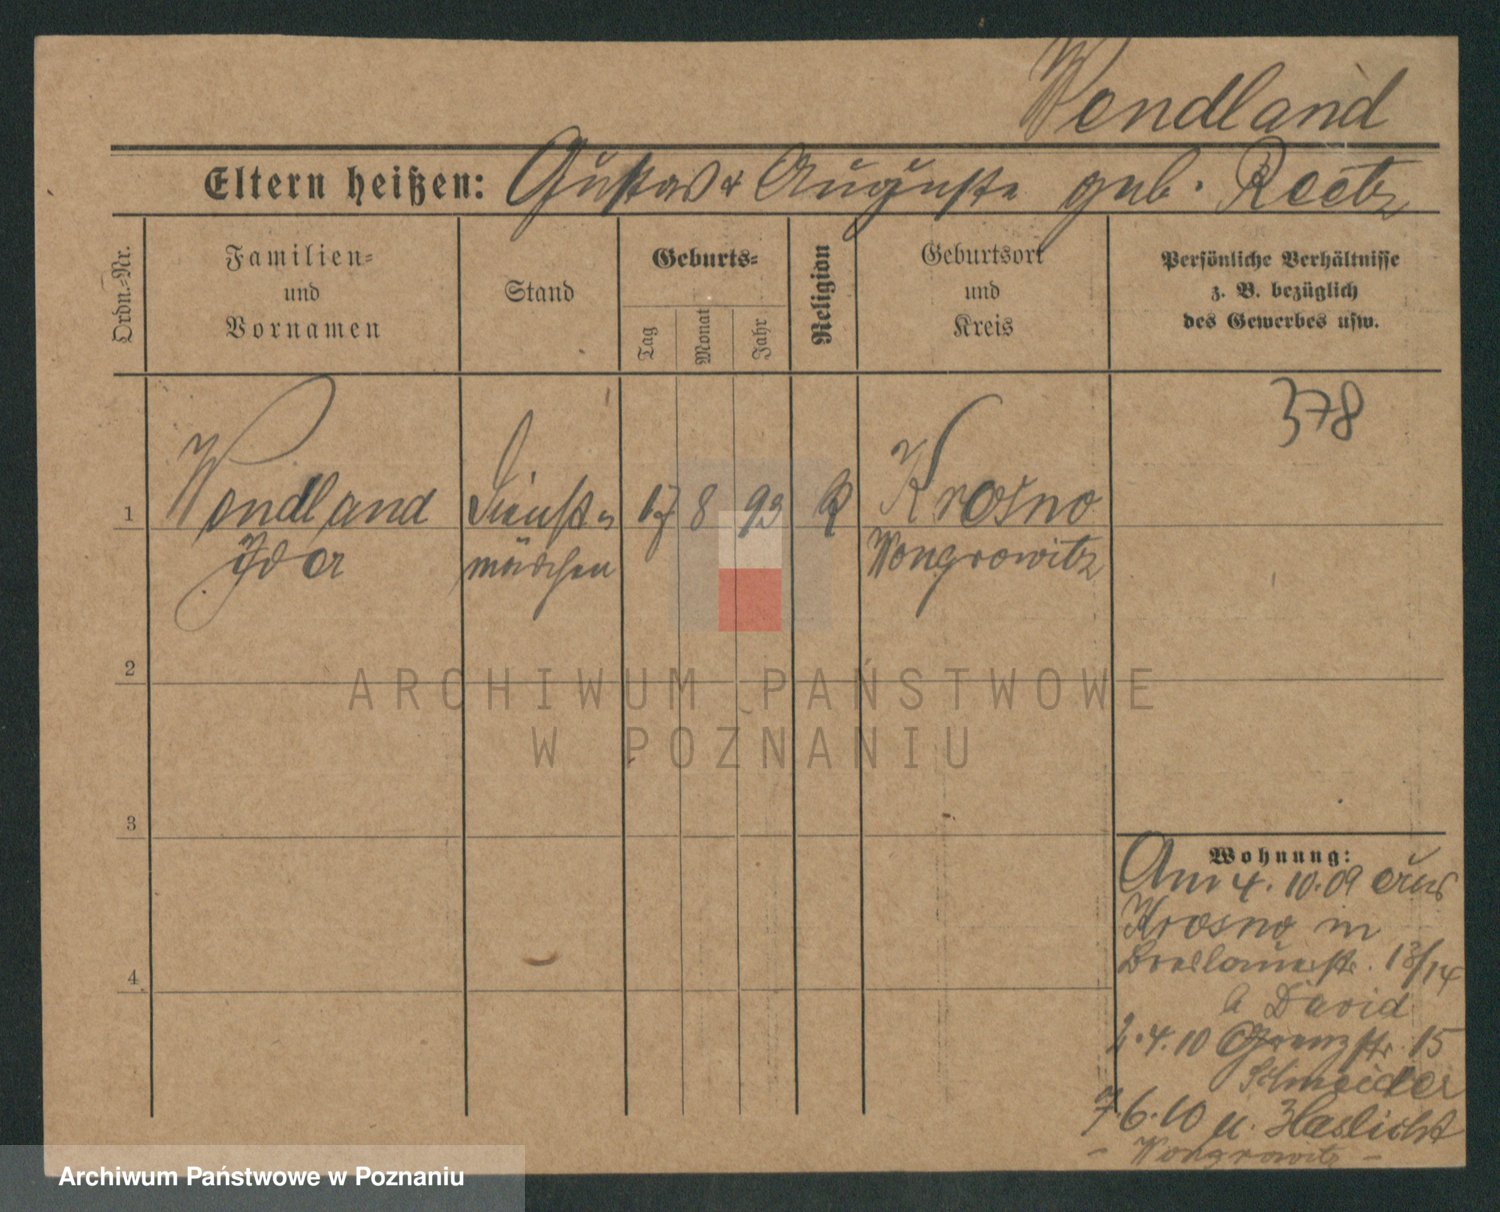 Wendland
Eltern heißen: Gustav & Auguste geb. Reetz
Ordn.-Nr.
Familien- und Vornamen
Stand
Geburts-
Tag
Monat
Jahr
Religion
Geburtsort und Kreis
Persönliche Verhältnisse
z. B. bezüglich
des Gewerbes usw.
378
1 Wendland Dienst- 17 8 93 Krosno
Ida mädchen Wongrowitz
2
3
4
Wohnung:
Am 4. 10. 09 aus
Krosno in
Breslauerstr. 13/14
b David
2. 4. 10 Grenzstr. 15
Schneider
7. 6. 10 u.
- Wongrowitz -
ARCHIWUM PAŃSTWOWE
W POZNANIU
Archiwum Państwowe w Poznaniu